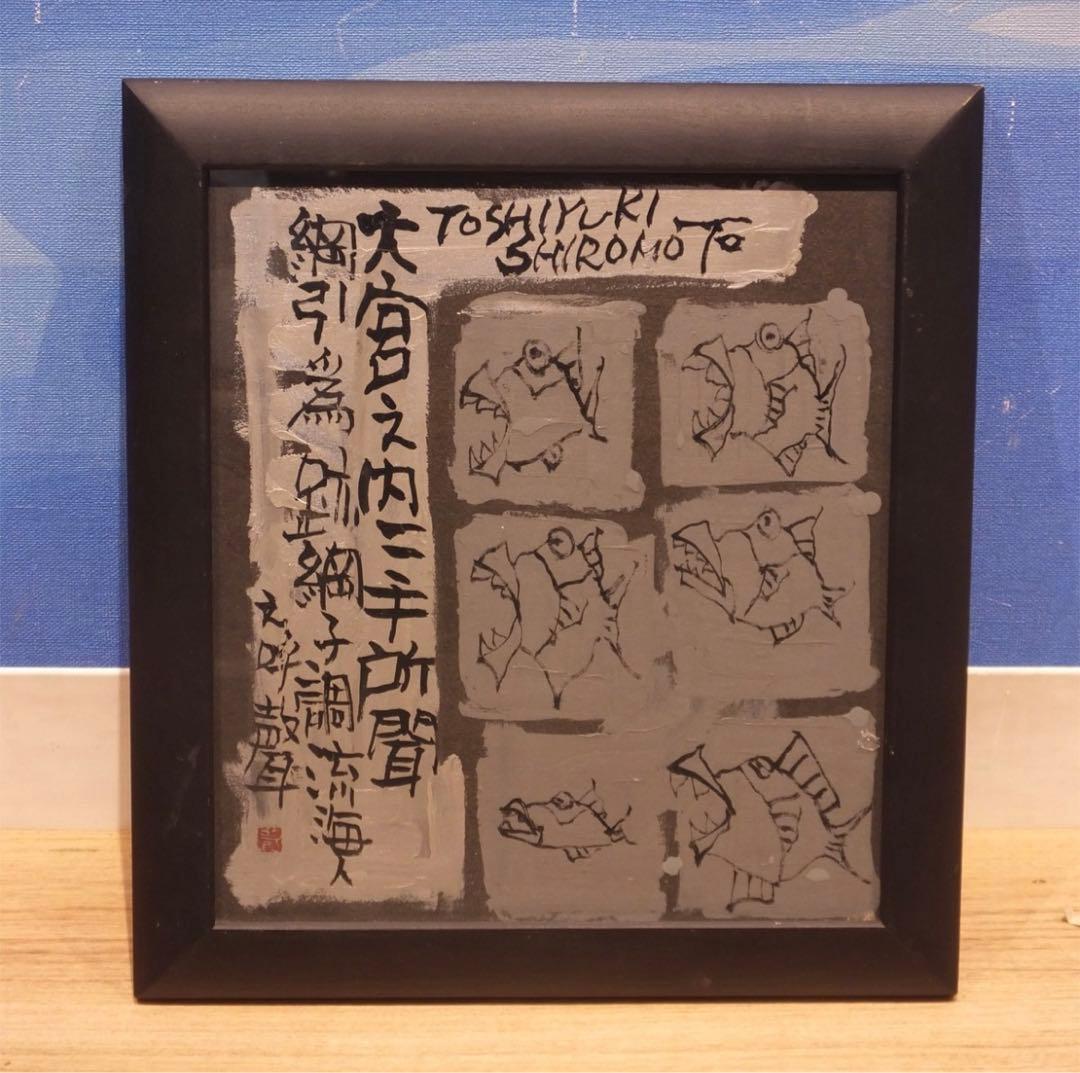 TOSHIYUKI
SHIROMOTO
大宮之内二手所聞
網引為跡網子調流海人
之呼聲